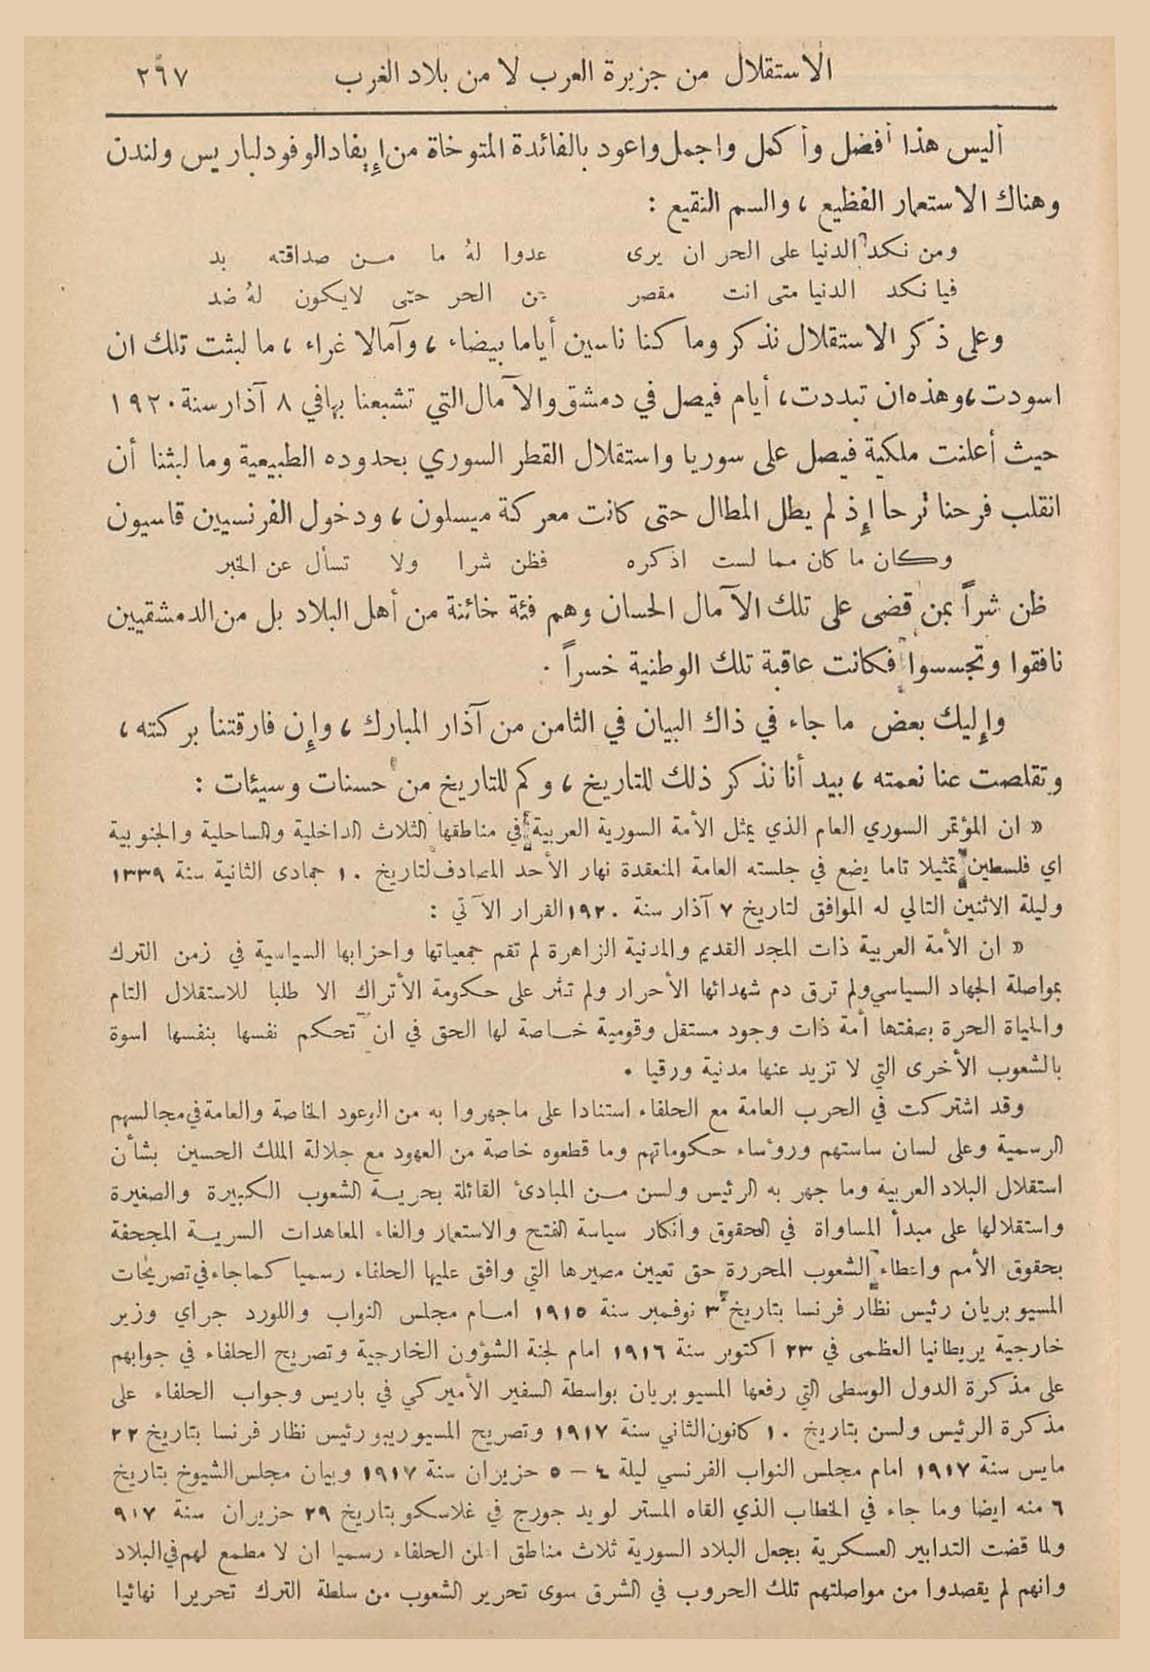 الاستقلال من جزيرة العرب لا من بلاد الغرب ٢٩٧
أليس هذا أفضل وأكمل واجمل واعود بالفائدة المتوخاة من إيفاد الوفود لباريس ولندن
وهناك الاستعمار الفظيع ، والسم النقيع :
ومن نكد الدنيا على الحر ان يرى عدوا لهُ ما من صداقته بد
فيا نكد الدنيا متى انت مقصر عن الحر حتى لايكون لهُ ضد
وعلى ذكر الاستقلال نذكر وما كنا ناسين أياما بيضاء ، وآمالا غراء ، ما لبثت تلك ان
اسودت ، وهذه ان تبددت ، أيام فيصل في دمشق والآمال التي تشبعنا بها في ٨ آذار سنة ١٩٢٠
حيث أعلنت ملكية فيصل على سوريا واستقلال القطر السوري بحدوده الطبيعية وما لبثنا أن
انقلب فرحنا ترحا إذ لم يطل المطال حتى كانت معركة ميسلون ، ودخول الفرنسيين قاسيون
وكان ما كان مما لست اذكره فظن شرا ولا تسأل عن الخبر
ظن شراً بمن قضى على تلك الآمال الحسان وهم فئة خائنة من أهل البلاد بل من الدمشقيين
نافقوا وتجسسوا فكانت عاقبة تلك الوطنية خسراً .
وإليك بعض ما جاء في ذاك البيان في الثامن من آذار المبارك ، وإن فارقتنا بركته ،
وتقلصت عنا نعمته ، بيد أنا نذكر ذلك للتاريخ ، وكم للتاريخ من حسنات وسيئات :
« ان المؤتمر السوري العام الذي يمثل الأمة السورية العربية في مناطقها الثلاث الداخلية والساحلية والجنوبية
اي فلسطين تمثيلا تاما يضع في جلسته العامة المنعقدة نهار الأحد المصادف لتاريخ ١٠ جمادى الثانية سنة ١٣٣٩
وليلة الاثنين التالي له الموافق لتاريخ ٧ آذار سنة ١٩٢٠ القرار الآتي :
« ان الأمة العربية ذات المجد القديم والمدنية الزاهرة لم تقم جمعياتها واحزابها السياسية في زمن الترك
بمواصلة الجهاد السياسي ولم ترق دم شهدائها الأحرار ولم تثر على حكومة الأتراك الا طلبا للاستقلال التام
والحياة الحرة بصفتها أمة ذات وجود مستقل وقومية خاصة لها الحق في ان تحكم نفسها بنفسها اسوة
بالشعوب الأخرى التي لا تزيد عنها مدنية ورقيا .
وقد اشتركت في الحرب العامة مع الحلفاء استنادا على ماجهروا به من الوعود الخاصة والعامة في مجالسهم
الرسمية وعلى لسان ساستهم ورؤساء حكوماتهم وما قطعوه خاصة من العهود مع جلالة الملك الحسين بشأن
استقلال البلاد العربية وما جهر به الرئيس ولسن من المبادئ القائلة بحرية الشعوب الكبيرة والصغيرة
واستقلالها على مبدأ المساواة في الحقوق وانكار سياسة الفتح والاستعمار والغاء المعاهدات السرية المجحفة
بحقوق الأمم واعطاء الشعوب المحررة حق تعيين مصيرها التي وافق عليها الحلفاء رسميا كما جاء في تصريحات
المسيو بريان رئيس نظار فرنسا بتاريخ ٣ نوفمبر سنة ١٩١٥ امام مجلس النواب واللورد جراي وزير
خارجية بريطانيا العظمى في ٢٣ اكتوبر سنة ١٩١٦ امام لجنة الشؤون الخارجية وتصريح الحلفاء في جوابهم
على مذكرة الدول الوسطى التي رفعها المسيو بريان بواسطة السفير الأميركي في باريس وجواب الحلفاء على
مذكرة الرئيس ولسن بتاريخ ١٠ كانون الثاني سنة ١٩١٧ وتصريح المسيو ريبو رئيس نظار فرنسا بتاريخ ٢٢
مايس سنة ١٩١٧ امام مجلس النواب الفرنسي ليلة ٤ – ٥ حزيران سنة ١٩١٧ وبيان مجلس الشيوخ بتاريخ
٦ منه ايضا وما جاء في الخطاب الذي القاه المستر لويد جورج في غلاسكو بتاريخ ٢٩ حزيران سنة ٩١٧
ولما قضت التدابير العسكرية بجعل البلاد السورية ثلاث مناطق اعلن الحلفاء رسميا ان لا مطمع لهم في البلاد
وانهم لم يقصدوا من مواصلتهم تلك الحروب في الشرق سوى تحرير الشعوب من سلطة الترك تحريرا نهائيا